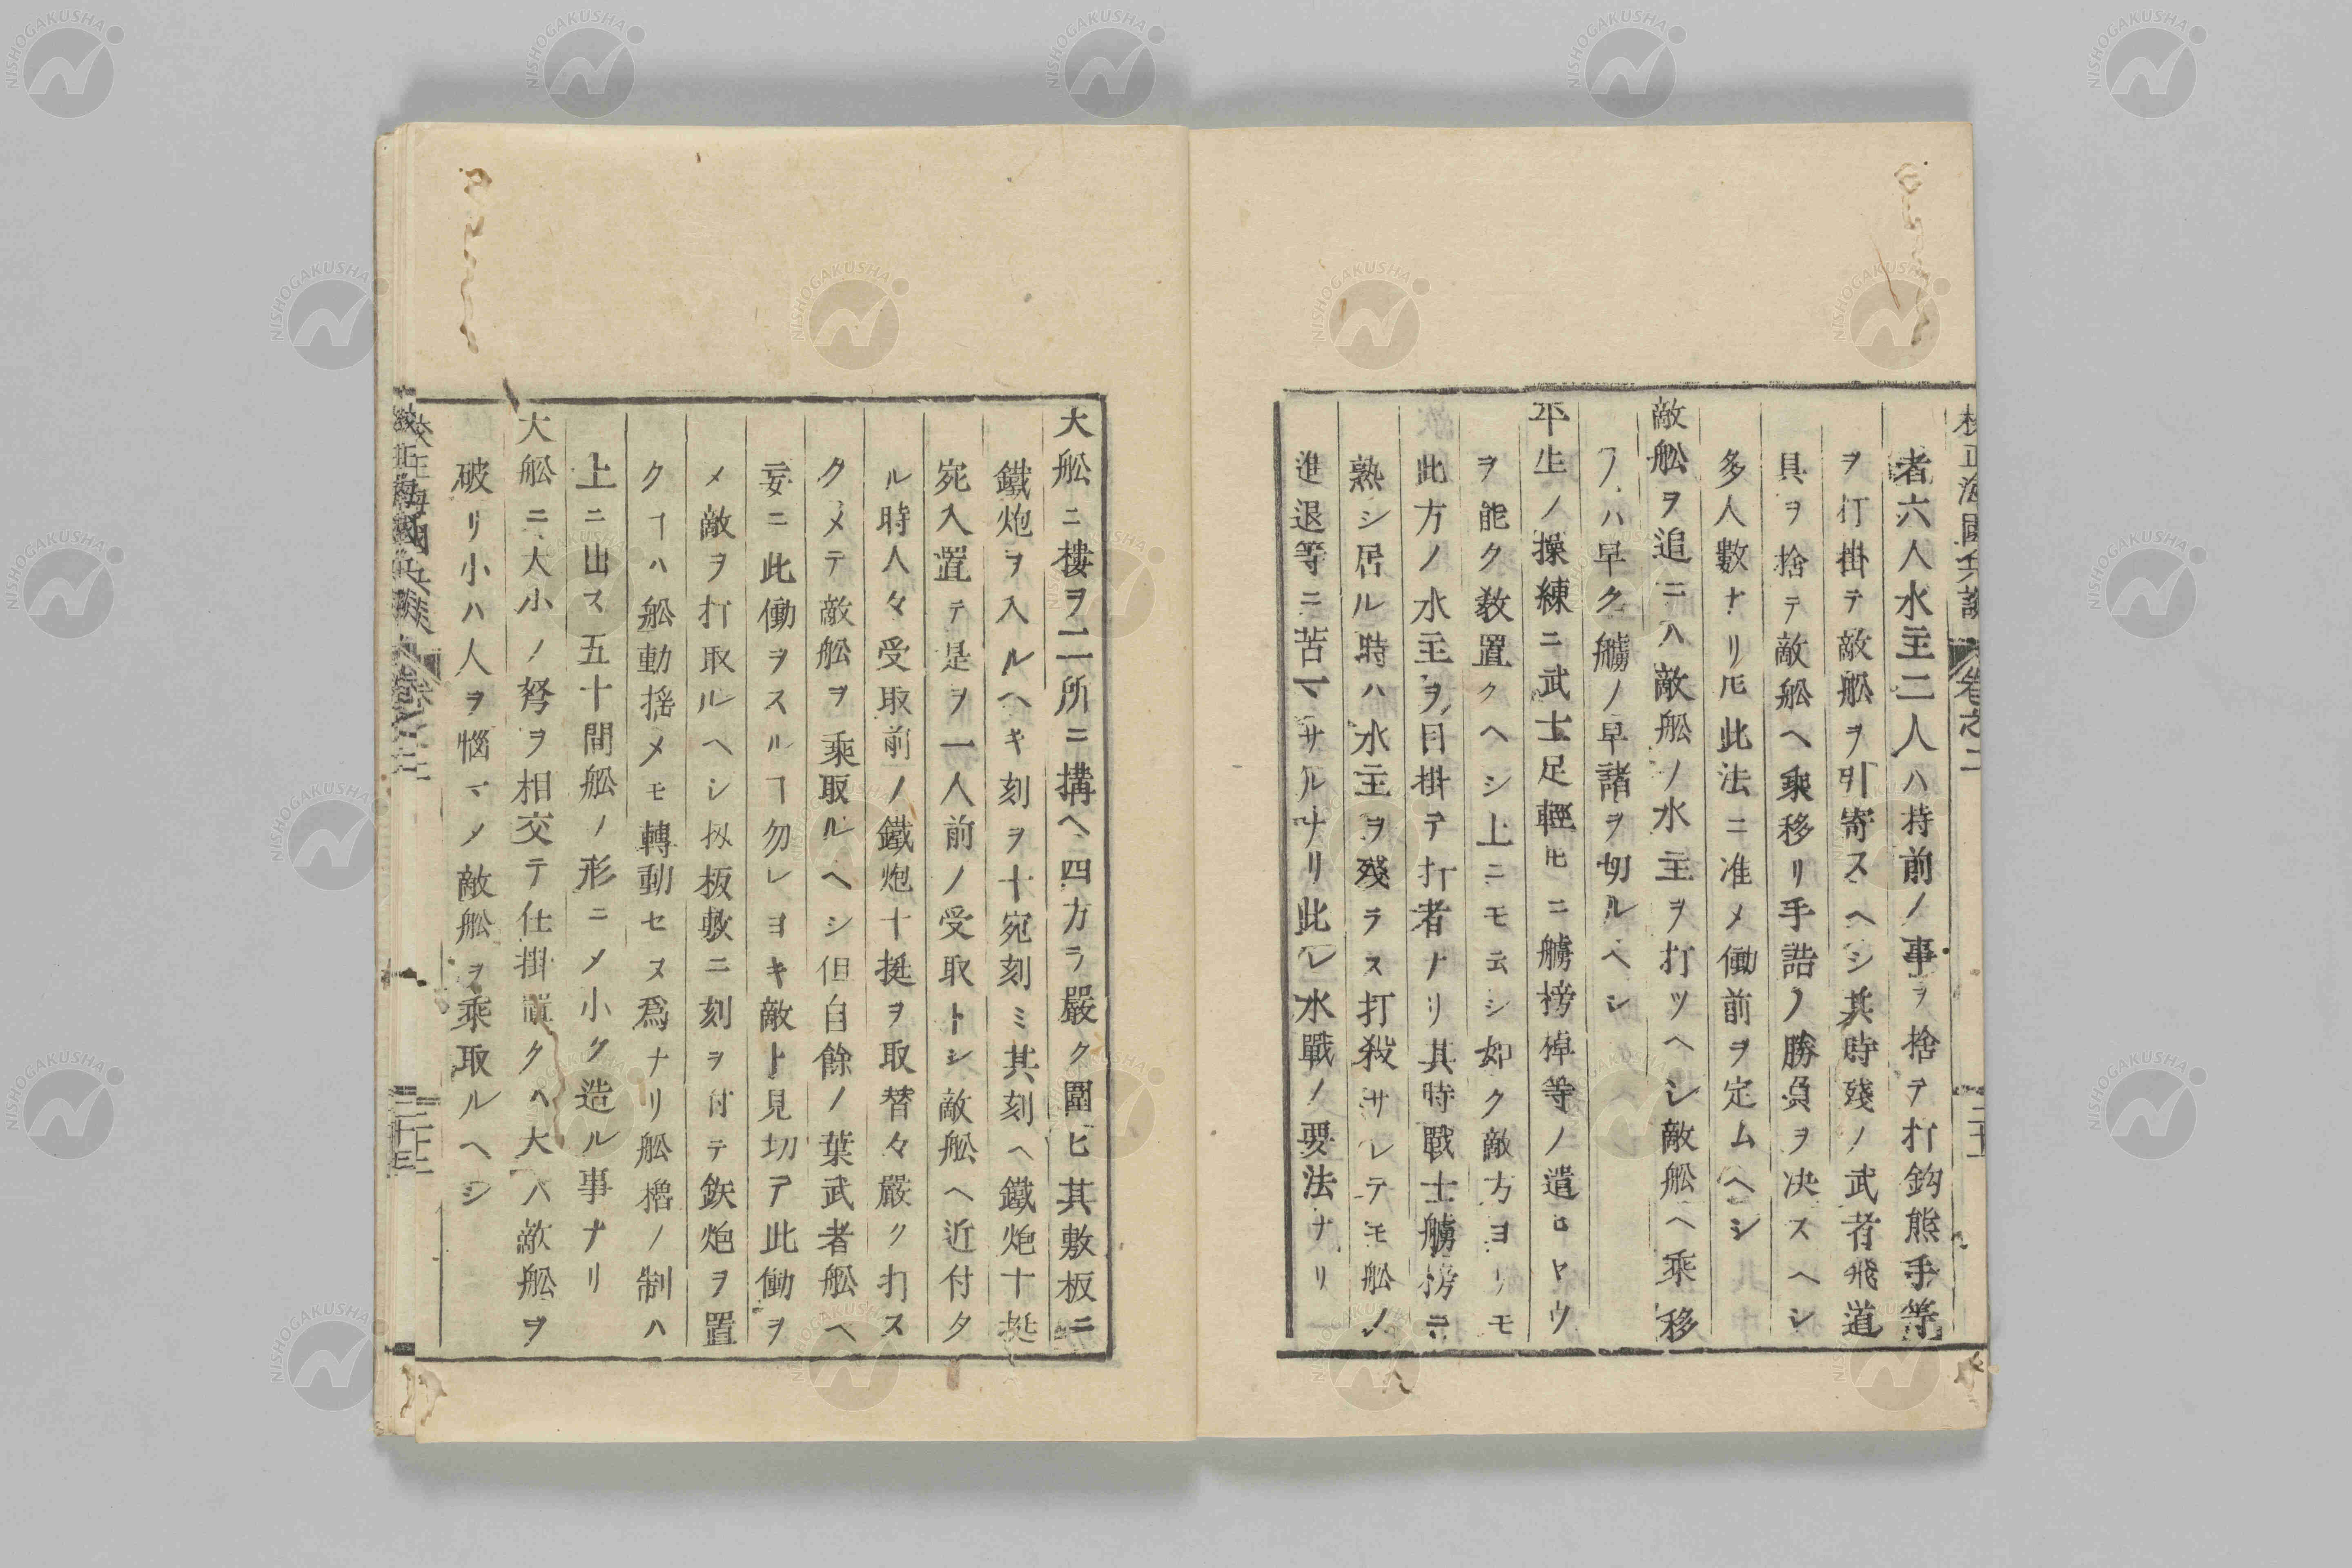 者六人水主二人ハ持前ノ事ヲ捨テ打鈎熊手等
ヲ打掛テ敵舩ヲ引寄スヘシ其時殘ノ武者飛道
具ヲ捨テ敵舩ヘ乘移リ手詰ノ勝負ヲ决スヘシ
多人數ナリ𪜈此法ニ准メ働前ヲ定ムヘシ
敵舩ヲ追ニハ敵舩ノ水主ヲ打ツヘシ敵舩ヘ乘移
ハ早ク艣ノ早諸ヲ切ルヘシ
平生ノ操練ニ武士足輕𪜈ニ艣榜棹等ノ遣ロヤウ
ヲ能ク敎置クヘシ上ニモ云シ如ク敵方ヨリモ
此方ノ水主ヲ目掛テ打者ナリ其時戰士艣榜ニ
熟シ居ル時ハ水主ヲ殘ラス打殺サレテモ舩ノ
進退等ニ苦マサルナリ此レ水戰ノ要法ナリ
大舩ニ樓ヲ二所ニ搆ヘ四方ヲ嚴ク圍ヒ其敷板ニ
鐵炮ヲ入ルヘキ刻ヲ十宛刻ミ其刻ヘ鐵炮十挺
宛入置テ是ヲ一人前ノ受取トシ敵舩ヘ近付タ
ル時人々受取前ノ鐵炮十挺ヲ取替々嚴ク打ス
クメテ敵舩ヲ乘取ルヘシ但自餘ノ葉武者舩ヘ
妄ニ此働ヲスルヿ勿レヨキ敵ト見切テ此働ヲ
メ敵ヲ打取ルヘシ扨板敷ニ刻ヲ付テ鉃炮ヲ置
クヿハ舩動揺メモ轉動セヌ爲ナリ舩櫓ノ制ハ
上ニ出ス五十間舩ノ形ニメ小ク造ル事ナリ
大舩ニ大小ノ弩ヲ相交テ仕掛置クヘ大ハ敵舩ヲ
破リ小ハ人ヲ惱マメ敵舩ヲ乘取ルヘシ
NISHOGAKUSHA